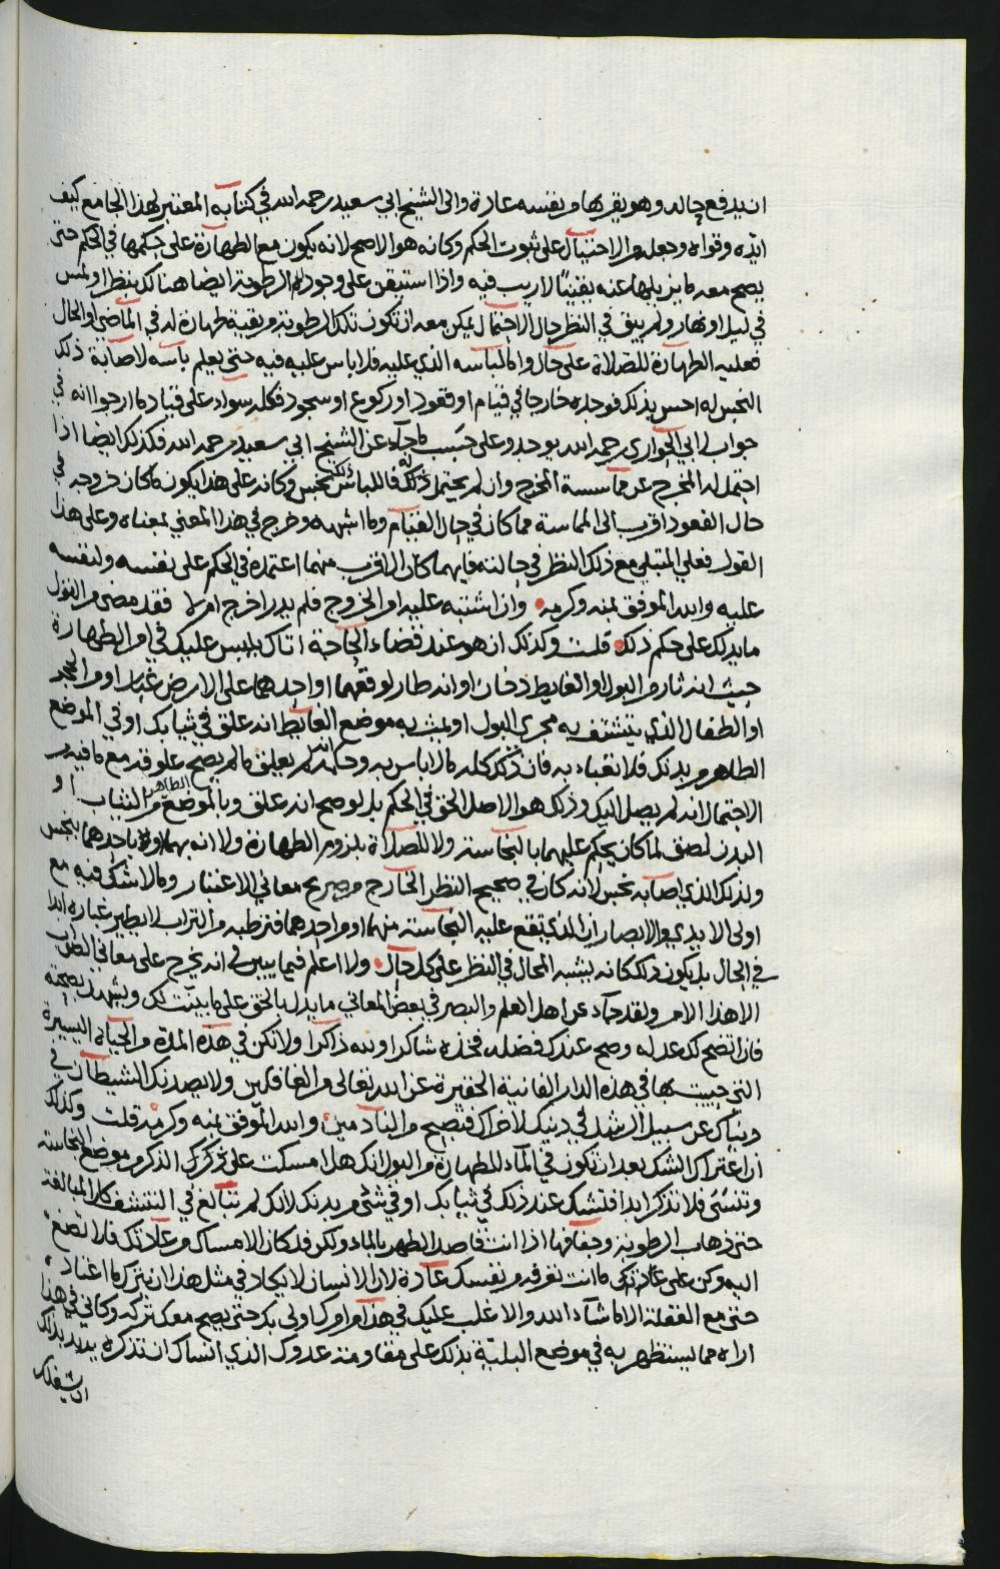 ان يدفع حاله وهو يقربها من نفسه عادة والى الشيخ ابي سعيد رحمه الله في كتابه المعتبر لهذا الجامع كيف
ايده وقواه وجعله من الاحتيال على ثبوت الحكم وكانه هو الاصح لانه يكون مع الطهارة على حكمها في الحكم حتى
يصح معه ما يزيلها عنه يقينا لا ريب فيه واذا استيقن على وجود الرطوبة ايضا هنالك بنظر او لمس
في ليل او نهار ولم يبق في النظر حال الاحتمال يمكن معه ان تكون تلك الرطوبة من بقية طهارة له في الماضي او الحال
فعليه الطهارة للصلاة على حال واما لباسه الذي عليه فلا باس عليه فيه حتى يعلم باسه لاصابة ذلك
النجس له احس بذلك فوجده خارجا في قيام او قعود او ركوع او سجود فكله سواء على قياد ما ارجوا انه في
جواب لابي الحواري رحمه الله يوجد وعلى حسب ما جاء عن الشيخ ابي سعيد رحمه الله فكذلك ايضا اذا
احتمل له المخرج عن مماسسة المخرج وان لم يحتمل ذلك له فاللباس نجس وكانه على هذا يكون ما كان خروجه في
حال القعود اقرب الى المماسة مما كان في حال القيام وما اشبهه وخرج في هذا المعنى بمعناه وعلى هذا
القول فعلى المبتلى مع ذلك النظر في حالته فايهما كان الاقرب منهما اعتمده في الحكم على نفسه ولنفسه
عليه والله الموفق بمنه وكرمه وان اشتبه عليه امر الخروج فلم يدر اخرج ام لا فقد مضى من القول
ما يدلك على حكم ذلك قلت وكذلك ان هو عند قضاء الحاجة اتاك يلبس عليك في امر الطهارة
حيث انه ثار من البول او الغايط دخان او انه طار لوقعهما او احدهما على الارض غبار او من الحجر
او الطفال الذي يتنشف به مجرى البول او يمسح به موضع الغايط انه علق في ثيابك او في الموضع
الطاهر من بدنك فلا تعباء به فان ذلك كله مما لا باس به وحكمه انه لم يعلق ما لم يصح علوقه مع ما فيه من
الاحتمال انه لم يصل اليك وذلك هو الاصل الحق في الحكم بل لو صح انه علق وبالموضع الطاهر من الثياب او
البدن لصق لما كان يحكم عليهما بالنجاسة ولا للصلاة بلزوم الطهارة ولا انه بهما ولا باحدهما ينجس
ولذلك الذي اصابه نجس لانه كان في صحيح النظر الخارج من صريح معاني الاعتبار ومما لا شك فيه مع
اولى الايدي والابصار ان الذي تقع عليه النجاسة منهما او من احدهما فترطبه من التراب لا يطير غباره ابدا
في الحال بل يكون ذلك كانه يشبه المحال في النظر على كل حال ولا اعلم فيما يبين لي انه يخرج على معاني الصواب
الا هذا الامر ولقد جاء عن اهل العلم والبصر في بعض المعاني ما يدل بالحق على ما بينت لك ويشهد بصحته
فان اتضح لك عدله وصح عندك فضله فخذه شاكرا وبه ذاكرا ولا تكن في هذه المدة من الحياة اليسيرة
التي حييت بها في هذه الدار الفانية الحقيرة عن الله تعالى من الغافلين ولا يصدنك الشيطان في
دنياك عن سبيل الرشد في دينك لاخراك فتصبح من النادمين والله الموفق بمنه وكرمه قلت وكذلك
ان اعتراك الشك بعد ان تكون في الماء للطهارة من البول انك هل امسكت على ذكرك الذكر من موضع النجاسة
وتنسى فلا تذكر ابدا فتشك عند ذلك في ثيابك او في شيء من بدنك لانك لم تبالغ في التنشف كل المبالغة
حتى ذهاب الرطوبة وجفافها اذا انت قاصد الطهر بالماء ولكن قد كان الامساك من عادتك فلا تصغ
اليه وكن على عادتك ما انت تعرفه من نفسك عادة لان الانسان لا يكاد في مثل هذا ان يترك ما اعتاد
حتى مع الغفلة الا ما شاء الله والاغلب عليك في هذا من امرك اولى بك حتى يصح معك تركه وكاني في هذا
اراه مما يستظهر به في موضع البلية بذلك على مقاومة عدوك الذي انساك ان تذكره يريد بذلك
ان يشغلك